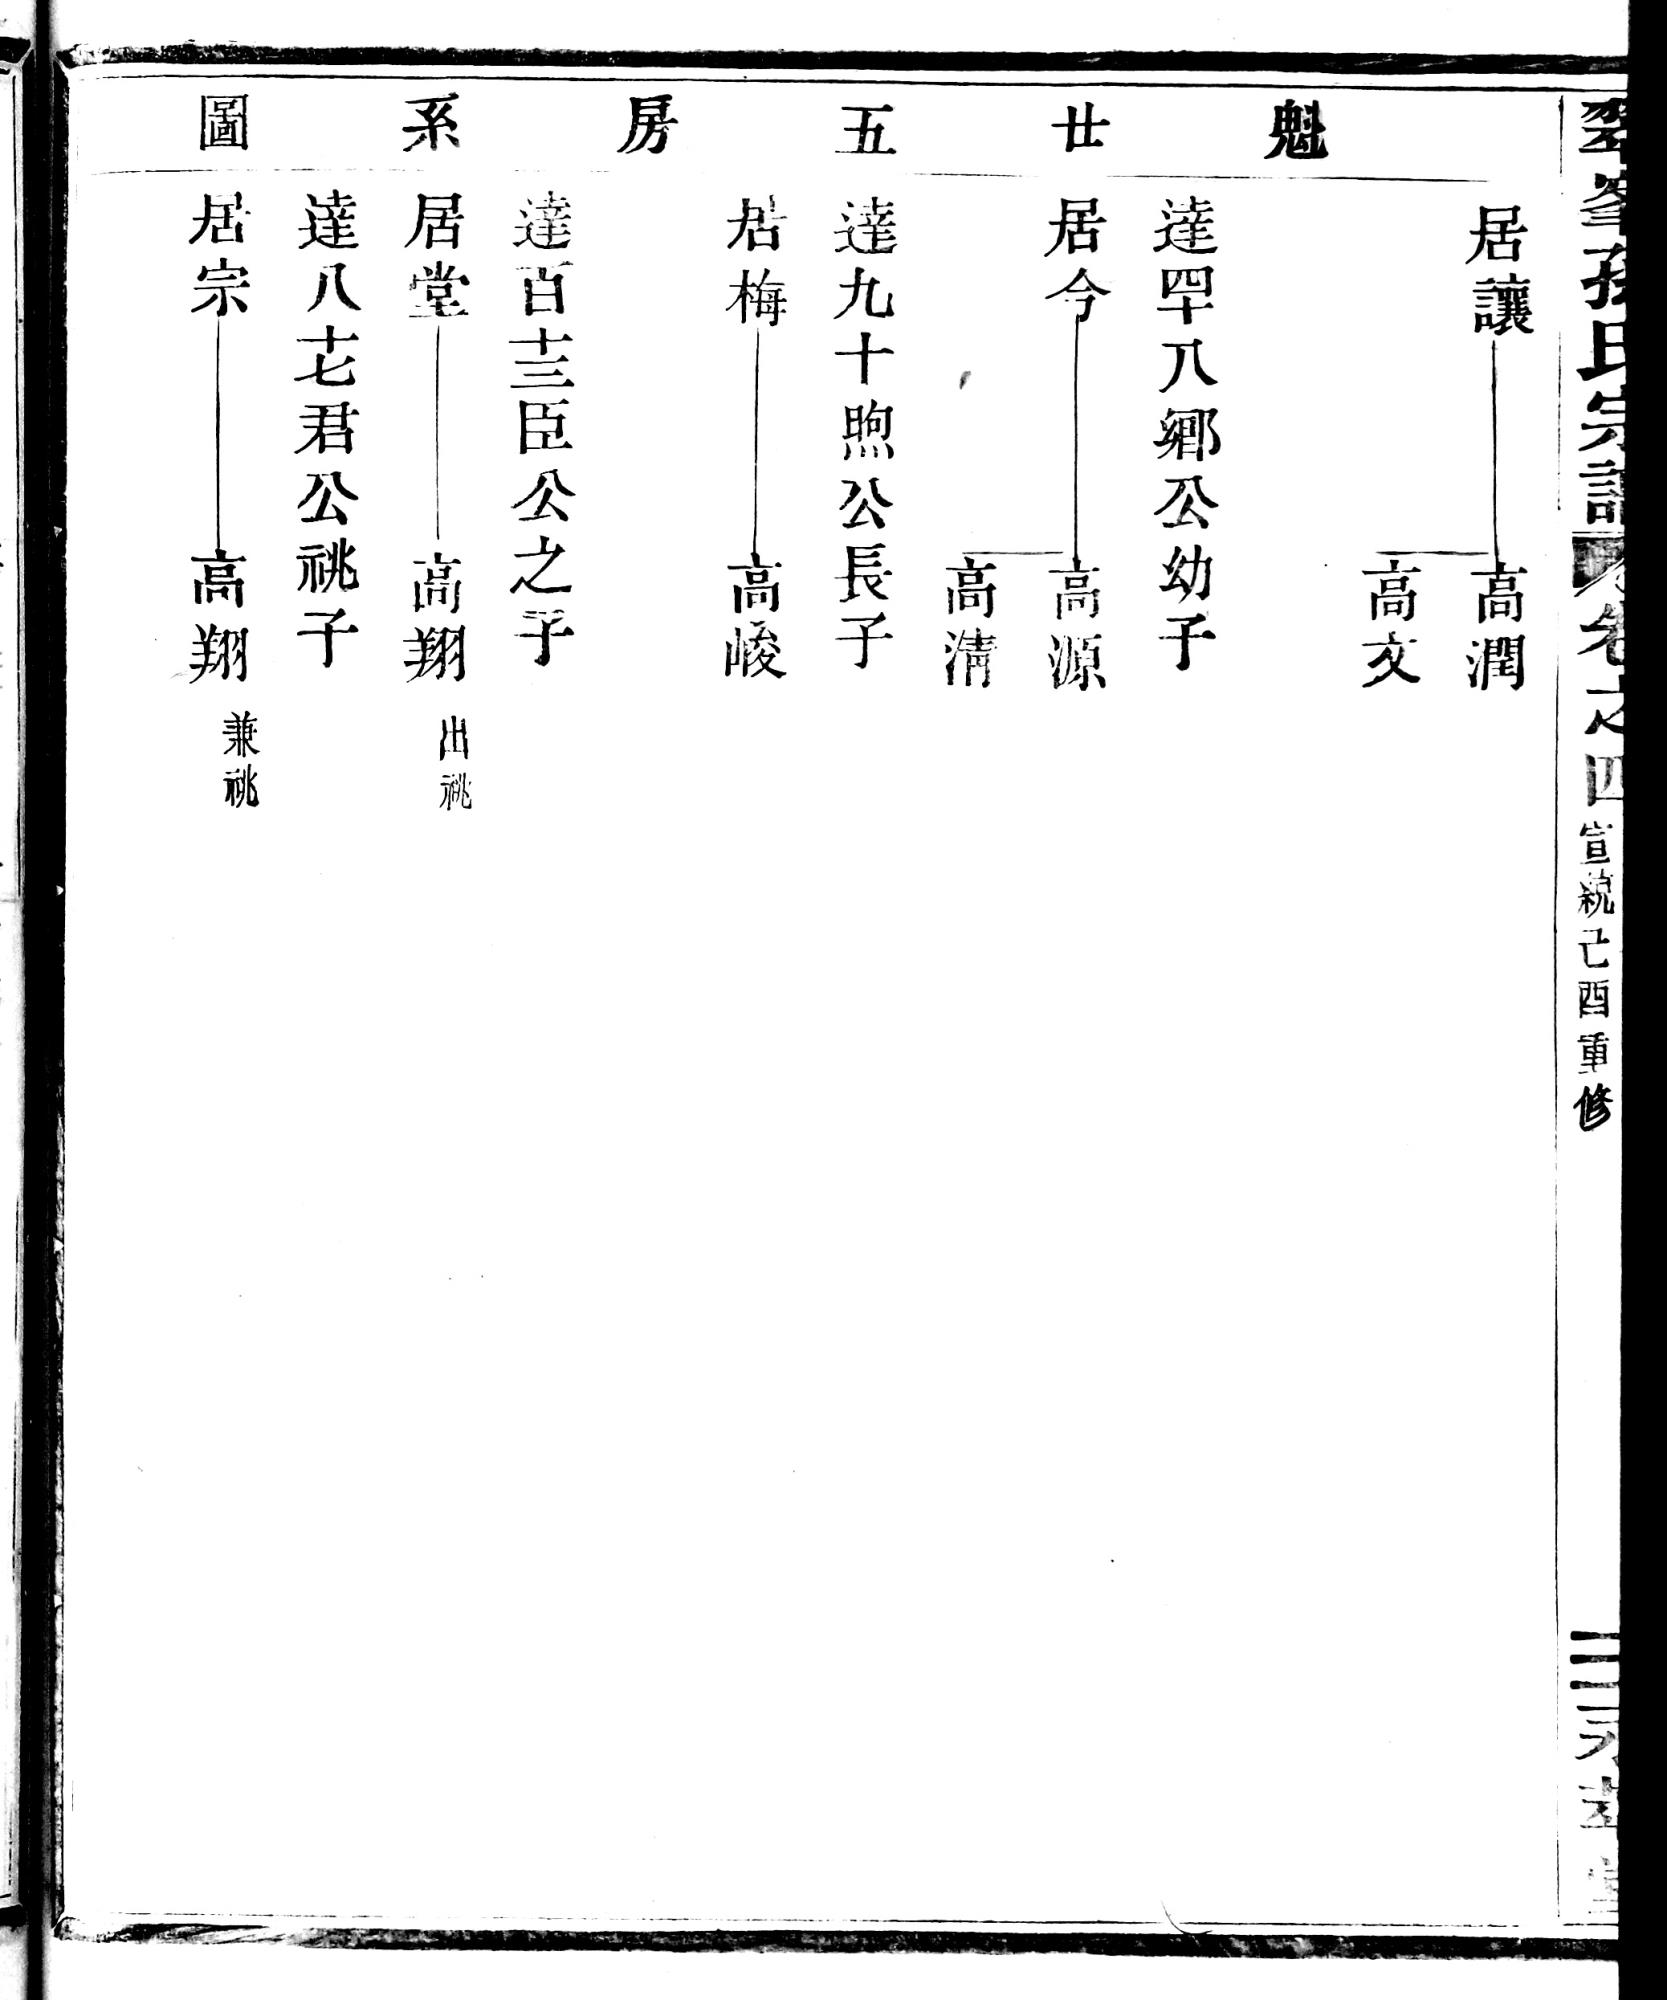 翠峯孫氏宗譜
卷之四
宣統己酉重修
魁廿五房系圖
居讓
高潤
高文
達四十八鄉公幼子
居今
高源
高淸
達九十煦公長子
居梅
高峻
達百十三臣公之子
居堂
高翔
出祧
達八十七君公祧子
居宗
高翔
兼祧